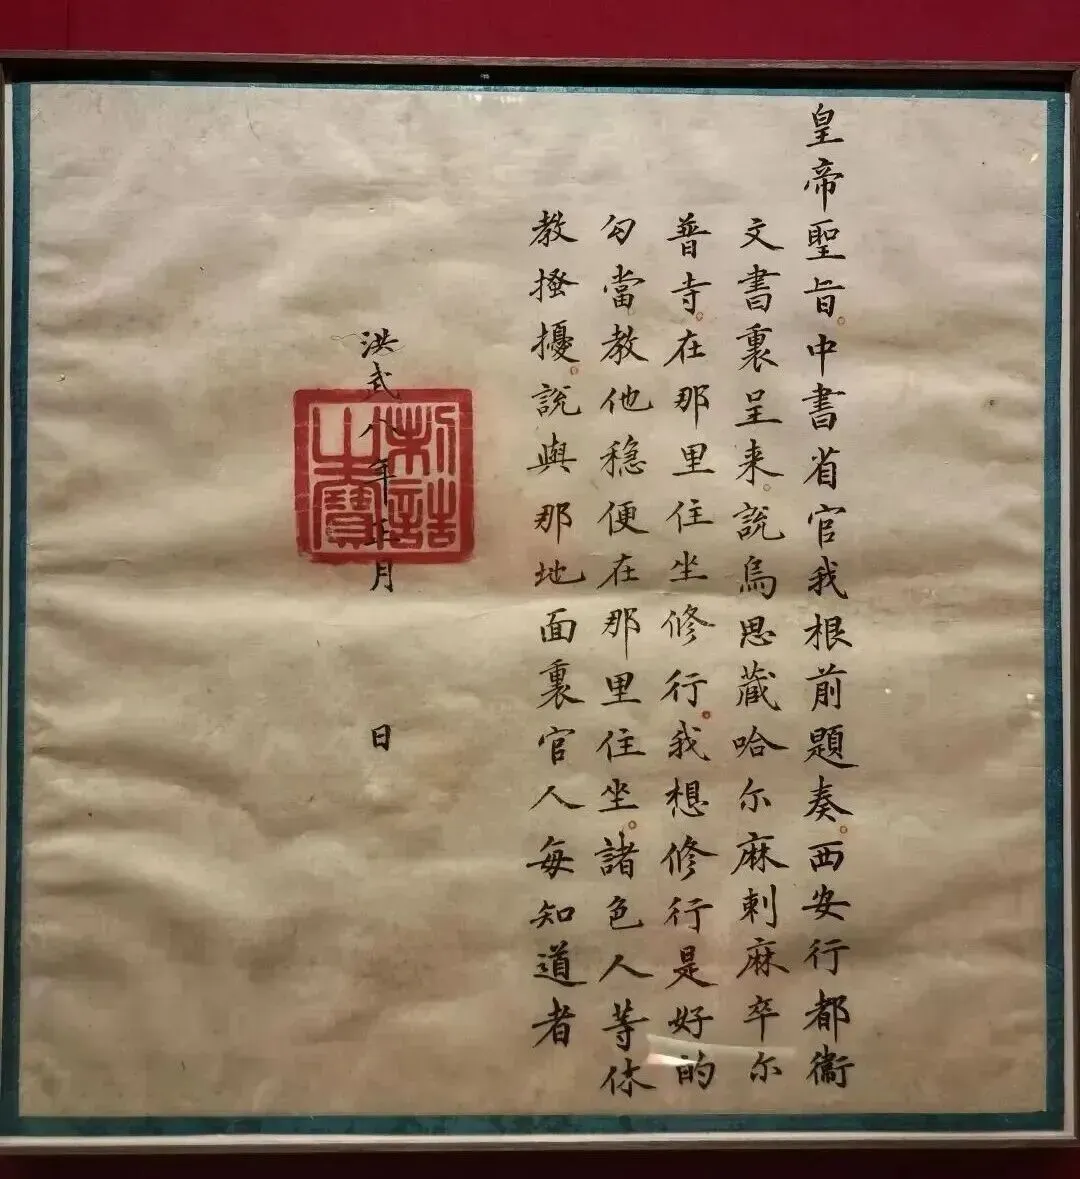 皇帝聖旨。中書省官我根前題奏。西安行都衞
文書裏呈来。說烏思藏哈尔麻剌麻卒尔
普寺。在那里住坐修行。我想修行是好的
勾當教他穏便在那里住坐。諸色人等休
教搔擾。說與那地面裏官人每知道者
洪武八年正月 日
制誥
之寶